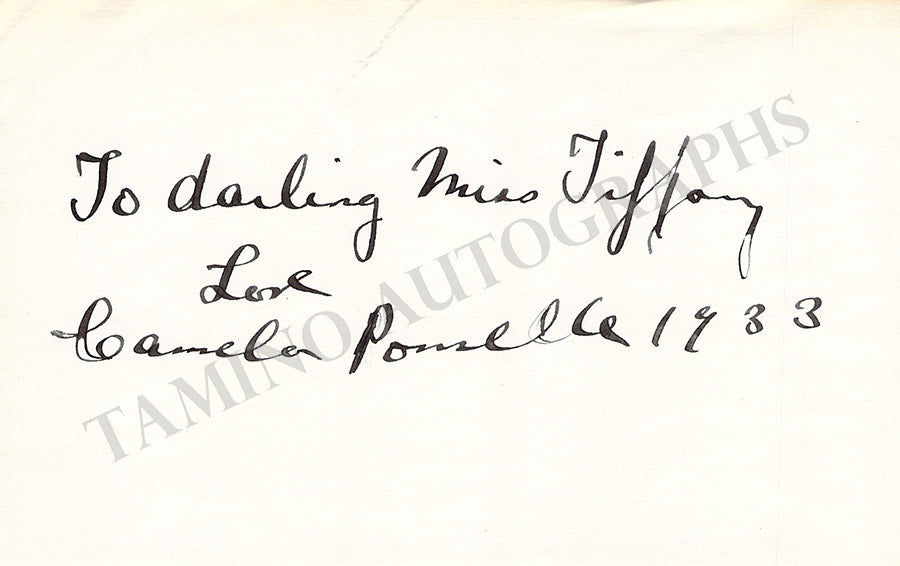 To darling Miss Tiffany
Love
Carmela Ponselle 1933
TAMINO AUTOGRAPHS